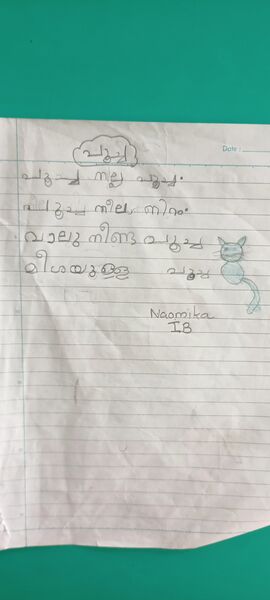 പൂച്ച
Date :
പൂച്ച നല്ല പൂച്ച.
പൂച്ച നീല നിറം.
വാലു നീണ്ട പൂച്ച
മീശയുള്ള പൂച്ച
Naomika
IB